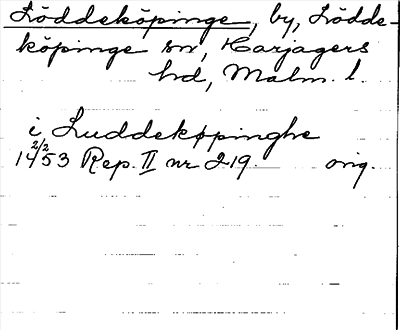 Löddeköpinge, by, Lödde-
köpinge sn, Harjagers
hd, Malm. l.
i Luddekøpinghe
2/2
1453 Rep. II nr 219. orig.